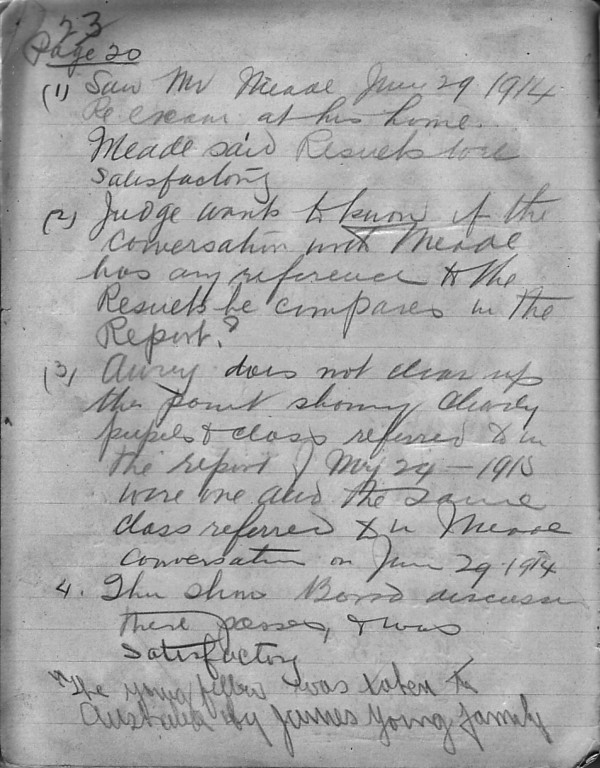 23
Page 20
(1) Saw Mr Meade June 29 1914
Re exam at his home.
Meade said Results were
satisfactory
(2) Judge wants to know if the
conversation with Meade
has any reference to the
Results he compares in the
Report.?
(3) does not clear up
the point showing clearly
pupils & class referred to in
the report of May 29 - 1915
were one and the same
class referred to in Meade
conversation on June 29 1914
4. This shows Board discussed
these passes, & was
satisfactory
"The young fellow was taken to
Australia by James Young family